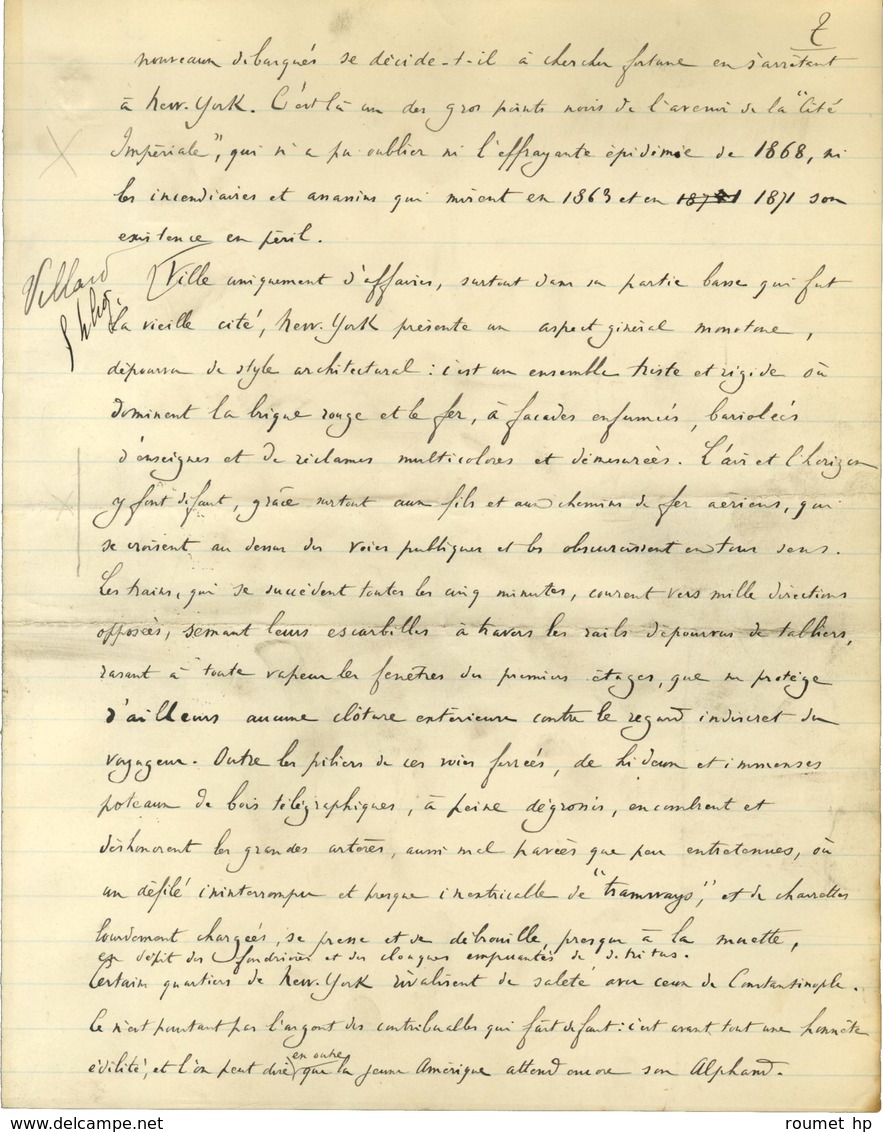 7
nouveaux débarqués se décide-t-il à chercher fortune en s'arrêtant
à New-York. C'est là un des gros points noirs de l'avenir de la "Cité
Impériale", qui n'a pu oublier ni l'effrayante épidémie de 1868, ni
les incendiaires et assassins qui mirent en 1863 et en 1871 son
existence en péril.
Villard
Ville uniquement d'affaires, surtout dans sa partie basse qui fut
la vieille cité, New-York présente un aspect général monotone,
dépourvu de style architectural : c'est un ensemble triste et rigide où
dominent la brique rouge et le fer, à façades enfumées, bariolées
d'enseignes et de réclames multicolores et démesurées. L'air et l'horizon
y font défaut, grâce surtout aux fils et aux chemins de fer aériens, qui
se croisent au dessus des voies publiques et les obscurcissent en tous sens.
Les trains, qui se succèdent toutes les cinq minutes, courent vers mille directions
opposées, semant leurs escarbilles à travers les rails dépourvus de tabliers,
rasant à toute vapeur les fenêtres des premiers étages, que ne protège
d'ailleurs aucune clôture extérieure contre le regard indiscret du
voyageur. Outre les piliers de ces voies ferrées, de hideux et immenses
poteaux de bois télégraphiques, à peine dégrossis, encombrent et
déshonorent les grandes artères, aussi mal pavées que peu entretenues, où
un défilé ininterrompu et presque inextricable de "tramways", et de charrettes
lourdement chargées, se presse et se débrouille, presque à la muette,
en dépit des fondrières et des cloaques empruantés de détritus.
Certains quartiers de New-York rivalisent de saleté avec ceux de Constantinople.
Ce n'est pourtant pas l'argent des contribuables qui fait défaut : c'est avant tout une honnête
édilité, et l'on peut dire en outre que la jeune Amérique attend encore son Alphand.
roumet hp